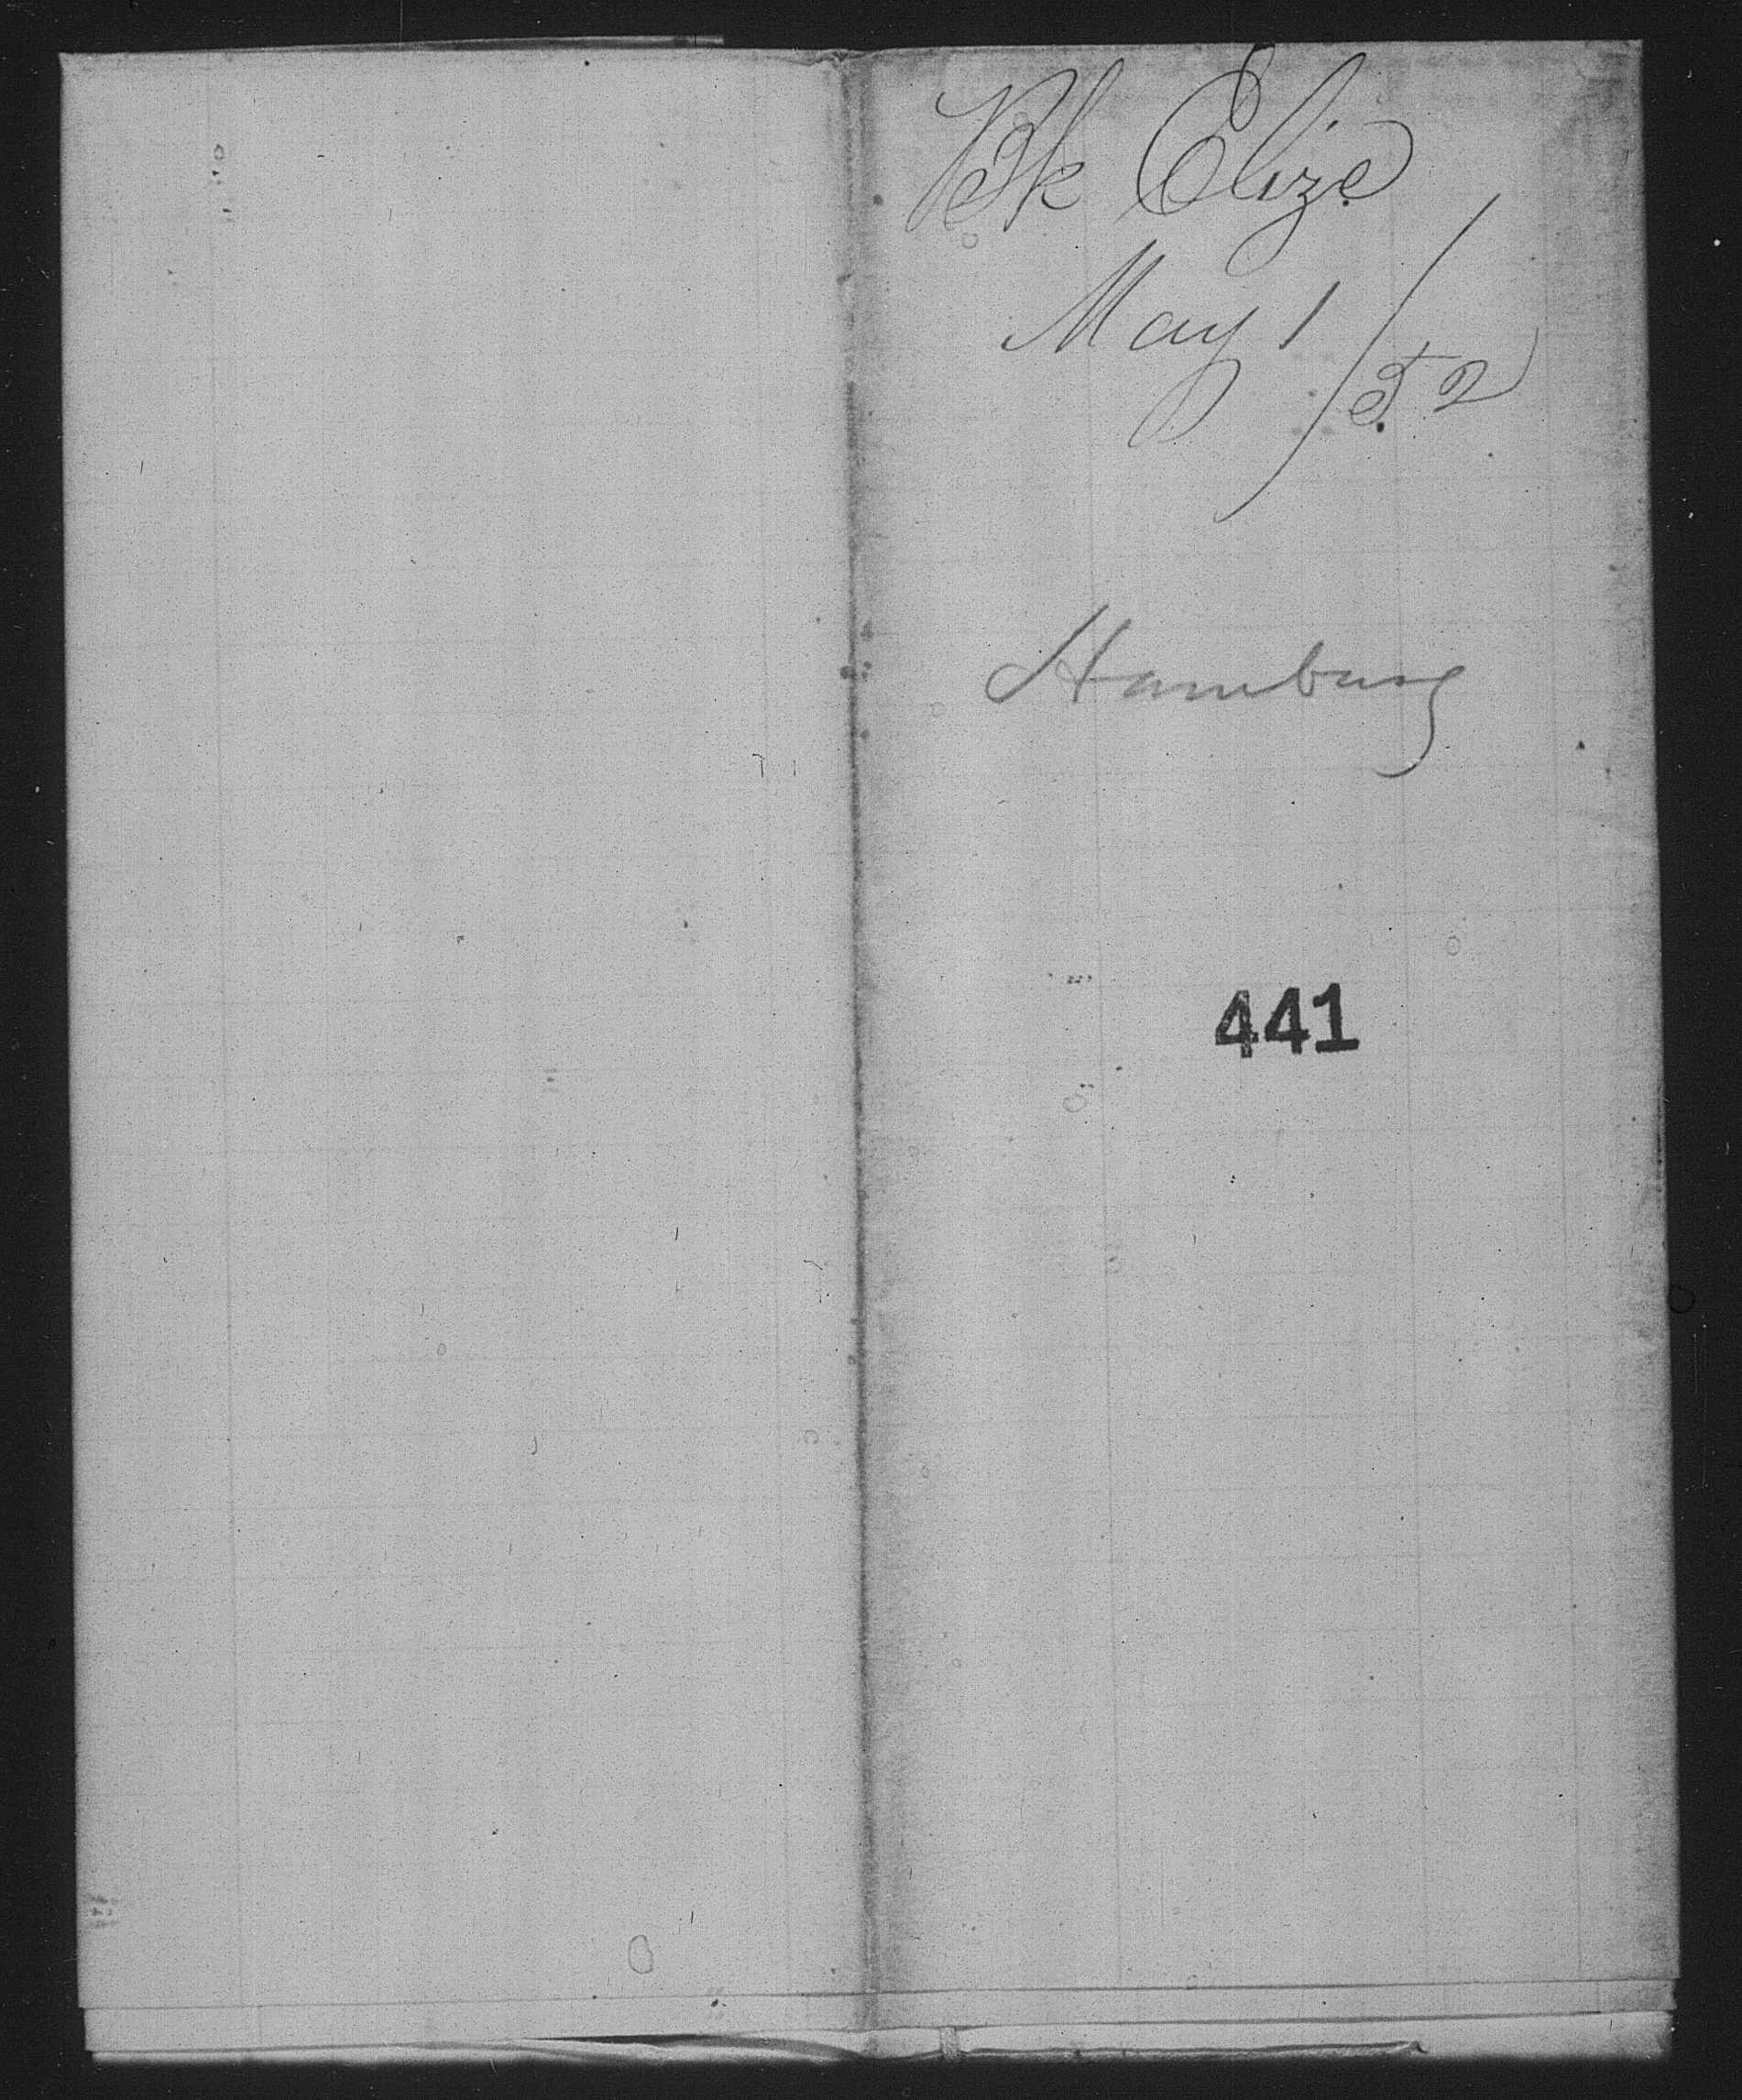 Bk Elize
May 1/52
Hamburg
441